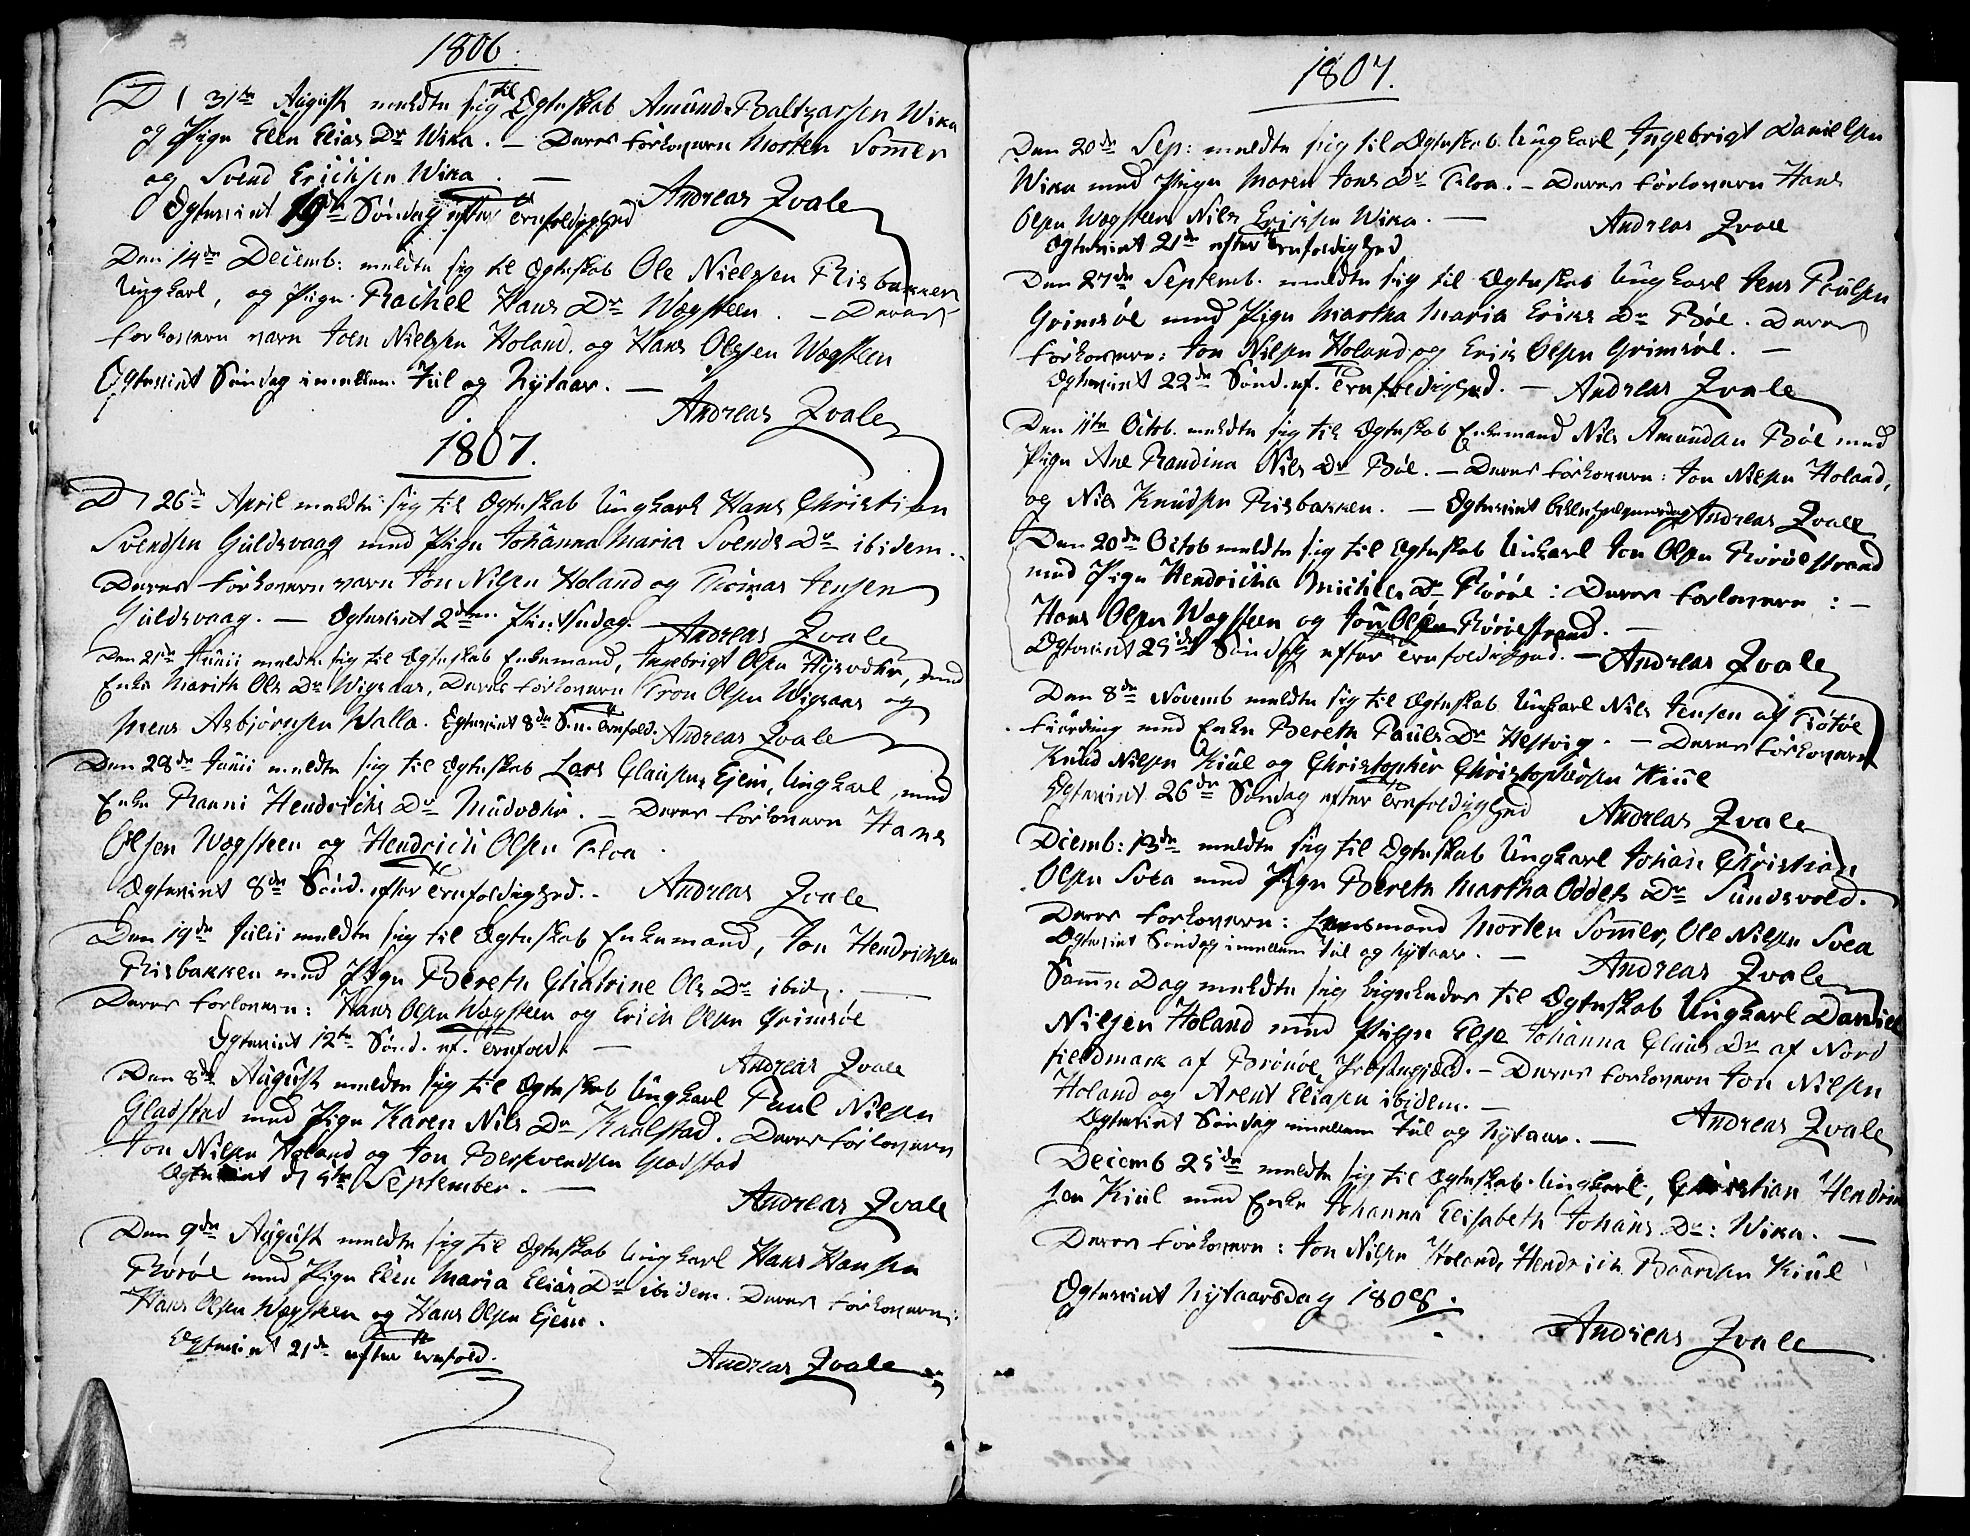 1806.
D 31te August meldte sig til Egteskab Amund Baltzarsen Wika
og Pige Elen Elias Dr Wika. – Deres Forlovere Morten Sommer
og Svend Erichsen Wika. –
Egteviet 19de Søndag efter Trefoldighed Andreas Zvale
Den 14de Decemb: meldte sig til Egteskab Ole Nielssen Risbakken
Ungkarl, og Pige Rachel Hans Dr Wægsteen. – Deres
Forlovere vare Joen Nielssen Holand og Hans Olssen Wægsteen
Egteviet Søndag imellem Juul og Nytaar. –
Andreas Zvale
1807.
D 26de April meldte sig til Egteskab Ungkarl Hans Christian
Svendsen Guldsvaag med Pige Johanna Maria Svends Dr ibidem.
Deres Forlovere vare Jon Nilsen Holand og Thomas Jensen
Guldsvaag. – Egteviet 2den Pintsedag. – Andreas Zvale
Den 21de Junii meldte sig til Egteskab Enkemand, Ingebrigt Olsen, med
Enke Marith Ols Dr Wigsaas, Deres Forlovere Tron Olsen Wigsaas og
Mens Asbjørnsen Walla. Egteviet 8de Søn. Trefold. Andreas Zvale
Den 28de Junii meldte sig til Egteskab Lars Clausen Ejem, Ungkarl, med
Enke Ranni Hendrichs Dr. – Deres Forlovere Hans
Olsen Wægsteen og Hendrich Olsen Floa.
Egteviet 8de Sønd. efter Trefoldighed. – Andreas Zvale
Den 19de Julii meldte sig til Egteskab Enkemand, Jon Hendrichsen
Risbakken med Pige Bereth Chatrine Ols Dr ibid. –
Deres Forlovere: Hans Olsen Wægsteen og Erich Olsen Grimsøe
Egteviet 12te Sønd. ef. Trefold. –
Andreas Zvale
Den 8de August meldte sig til Egteskab Ungkarl Paul Nilsen
Gladstad med Pige Karen Nils Dr Kaalstad. Deres Forlovere
Jon Nilsen Holand og Jon Gladstad
Egteviet d 5te September. –
Andreas Zvale
Den 9de August meldte sig til Egteskab Ungkarl Hans Hansen
Rørøe med Pige Elen Maria Elias Dr ibidem. Deres Forlovere:
Hans Olsen Wægsteen og Hans Olsen Ejem.
Egteviet 21de efter Trefold.
Andreas Zvale
1807.
Den 20de Sep: meldte sig til Egteskab Ungkarl Ingebrigt Danielsen
Wika med Pige Maren Jens Dr Floa. – Deres Forlovere Hans
Olsen Wægsteen Nils Eriksen Wika. –
Andreas Zvale
Egteviet 21de efter Trefoldighed
Den 27de Septemb. meldte sig til Egteskab Ungkarl Jens Paulsen
Grimsøe med Pige Martha Maria Eriks Dr Bøe. Deres
Forlovere: Jon Nilsen Holand og Erik Olsen Grimsøe. –
Egteviet 22de Sønd. ef. Trefoldighed. – Andreas Zvale
Den 11te Octob. meldte sig til Egteskab Enkemand Nils Amundsen Bøe med
Pige Ane Randina Nils Dr Bøe. – Deres Forlovere: Jon Nilsen Holand,
og Nils Knudsen Risbakken. – Egteviet Allehelgensdag Andreas Zvale
Den 20de Octob meldte sig til Egteskab Unkarl Jon Olsen Rørøestrand
med Pige Hendricha Michels Dr Rørøe: Deres Forlovere: –
Hans Olsen Wægsteen og Jon Olsen Rørøestrand. –
Egteviet 25de Søndag efter Trefoldighed. – Andreas Zvale
Den 8de Novemb meldte sig til Egteskab Unkarl Nils Jensen af
Fiærding med Enke Bereth Pauls Dr Hestvig. – Deres Forlovere
Knud Nilsen Kiul og Christopher Christophersen Kiul
Egteviet 26de Søndag efter Trefoldighed
Andreas Zvale
Dcemb: 13de meldte sig til Egteskab Ungkarl Johan Christian
Olsen Svea med Pige Bereth Martha Oddes Dr Sundsvold.
Deres Forlovere: Lensmand Morten Sommer, Ole Nilsen Svea
Egteviet Søndag imellem Jul og Nytaar. –
Andreas Zvale
Samme Dag meldte sig ligeledes til Egteskab Ungkarl Daniel
Nilsen Holand med Pige Else Johanna Claus Dr af Nord
fieldmark af Brønøe Præstegjæld. – Deres Forlovere Jon Nilsen
Holand og Arent Eliasen ibidem. –
Egteviet Søndag imellem Jul og Nytaar. –
Andreas Zvale
Decemb 25de meldte sig til Egteskab Ungkarl, Christian Hendrik
sen Kiul med Enke Johanna Elisabeth Johans Dr: Wika. –
Deres Forlovere: Jon Nilsen Holand, Hendrich Baardsen Kiul
Egteviet Nytaarsdag 1808.
Andreas Zvale